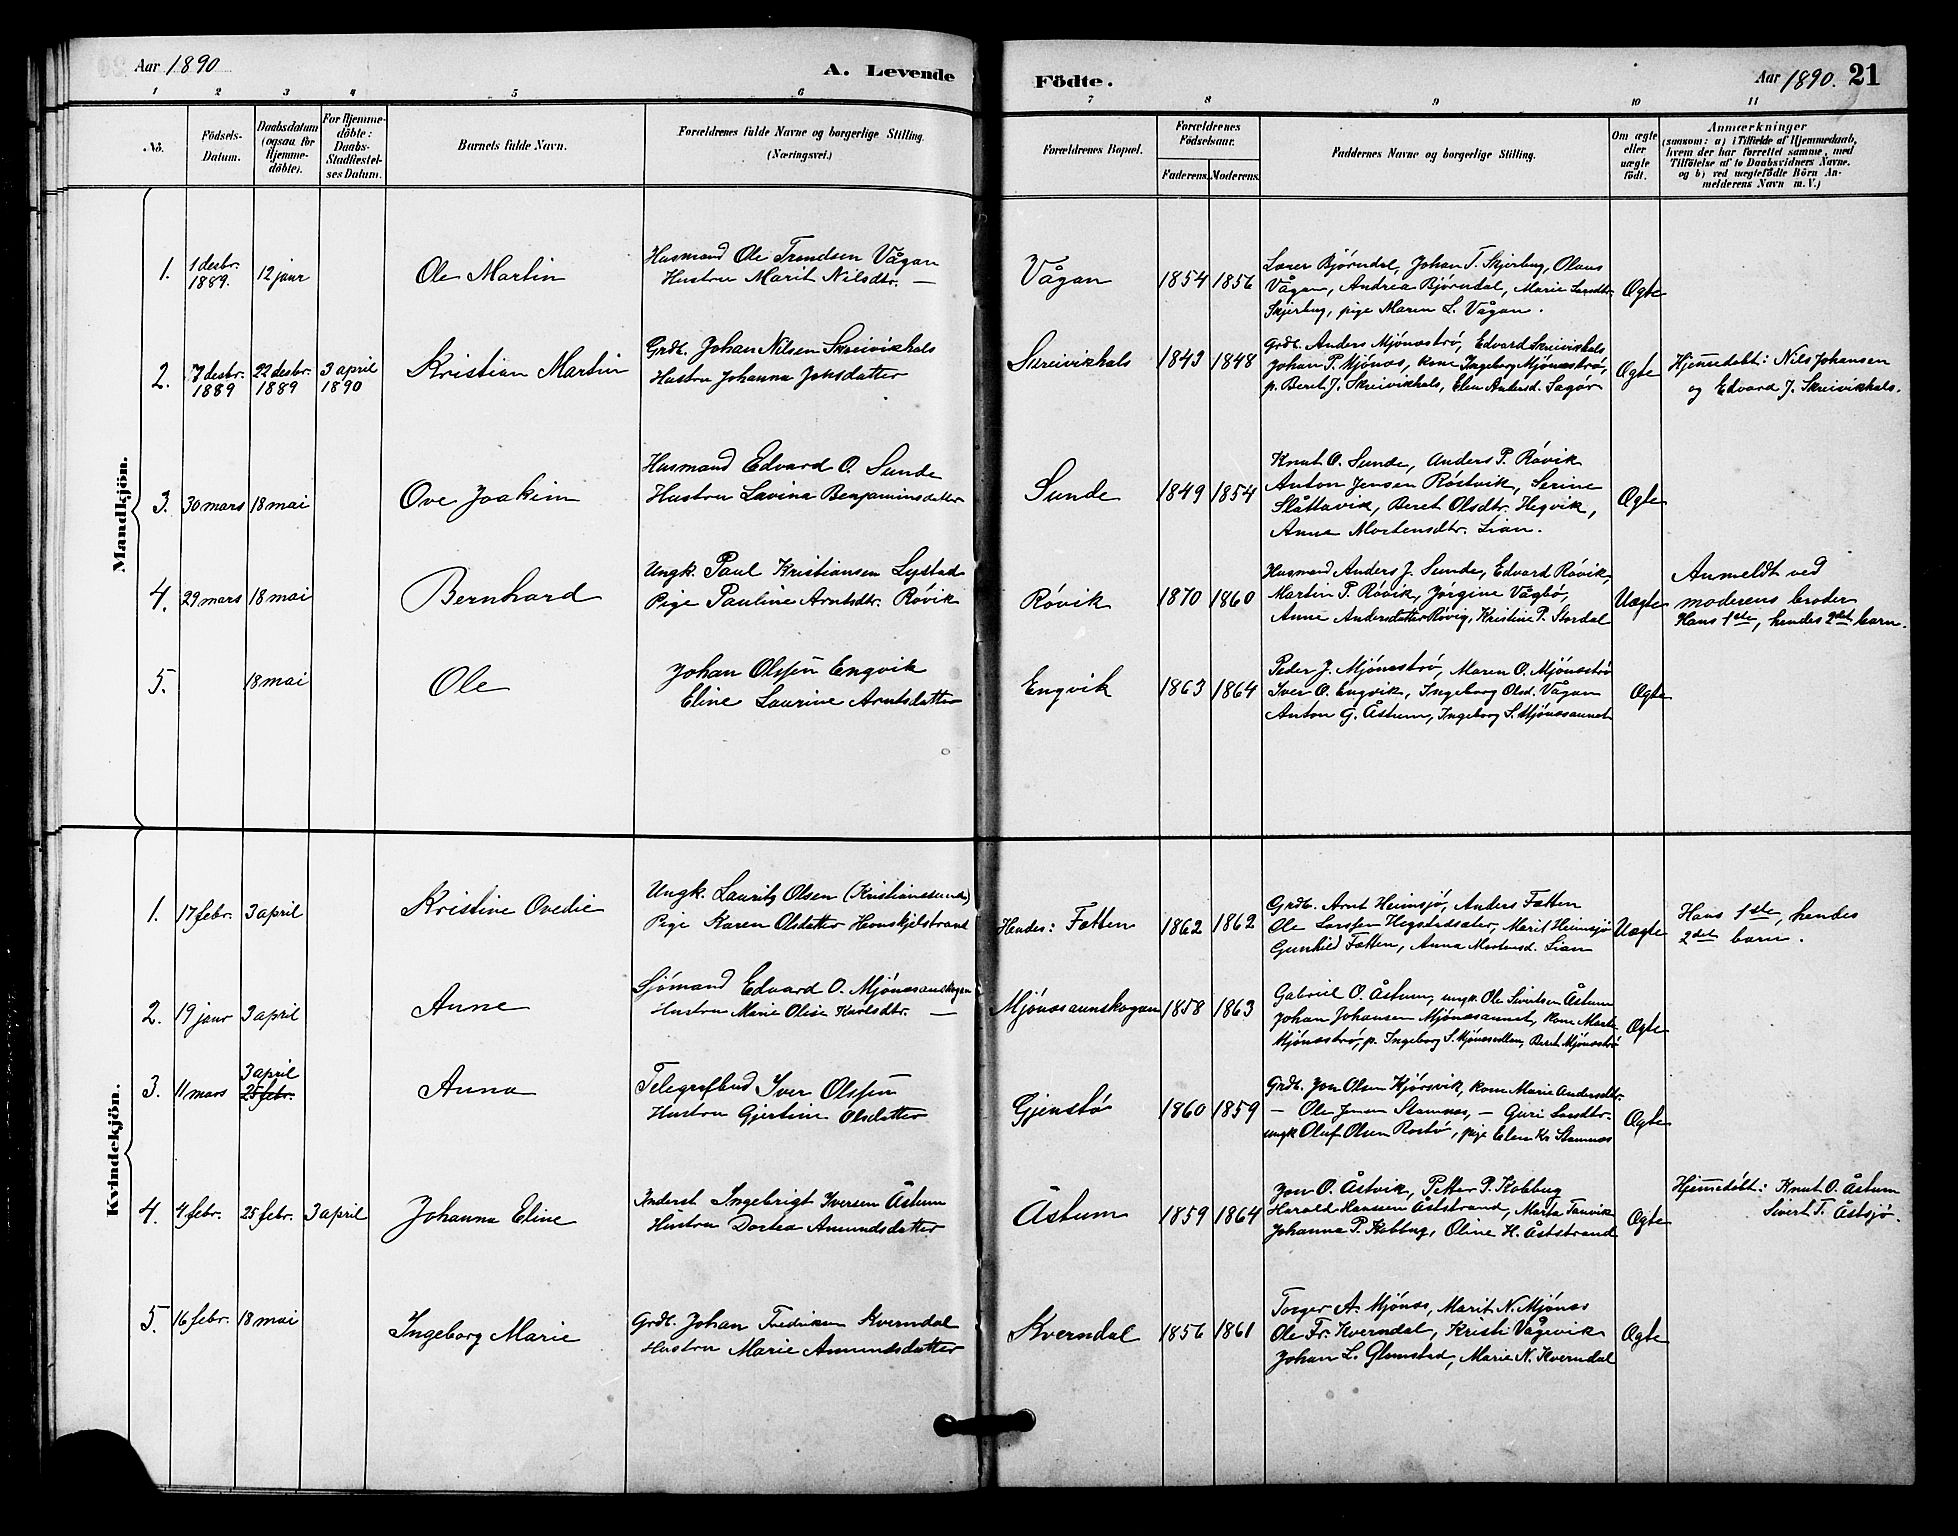 Aar 1890
A. Levende
Födte.
Aar 1890. 21
1 2 3 4 5 6 7 8 9 10 11
No.
Födsels-
Datum.
Daabsdatum
(ogsaa for
Hjemme-
döbte).
For Hjemme-
döbte:
Daabs-
Stadfæstel-
ses Datum.
Barnets fulde Navn.
Forældrenes fulde Navne og borgerlige Stilling.
(Næringsvei.)
Forældrenes Bopæl.
Forældrenes
Födselsaar.
Faderens. Moderens.
Faddernes Navne og borgerlige Stilling.
Om ægte
eller
uægte
födt.
Anmærkninger
(saasom: a) i Tilfælde af Hjemmedaab,
hvem der har forrettet samme, med
Tilföielse af to Daabsvidners Navne.
og b) ved uægtefödte Börn An-
melderens Navn m. V.)
Mandkjön.
1. 1 desbr. 1889. 12 januar
Ole Martin
Husmand Ole Trondsen Vågan
Hustru Marit Nilsdtr. —
Vågan 1854 1856
Lærer Bjørndal, Johan T. Skjerbug, Olaus
Vågan, Andrea Bjørndal, Marie Larsdtr.
Skjerbug, pige Maren L. Vågan.
Ægte
2. 7 desbr. 1889 22 desbr. 1889 3 april 1890
Kristian Martin
Grdb. Johan Nilsen Skreivikhals
Hustru Johanna Jonsdatter
Skreivikhals 1843 1848
Grdb. Anders Mjöneströ, Edvard Skreivikhals
Johan P. Mjönes, kone Ingeborg Mjöneströ,
p. Beret J. Skreivikhals, Elen Andersd. Sagör
Ægte
Hjemmedöbt: Nils Johansen
og Edvard J. Skreivikhals.
3. 30 mars 18 mai
Ove Joakim
Husmand Edvard O. Sunde
Hustru Lavina Benjaminsdatter
Sunde 1849 1854
Knut O. Sunde, Anders P. Rövik
Anton Jensen Röstvik, Serine
Slåttavik, Beret Olsdtr. Hegvik,
Anna Mortensdtr. Lian.
Ægte
4. 29 mars 18 mai
Bernhard
Ungk. Paul Kristiansen Lystad
Pige Pauline Arntsdtr. Rövik
Rövik 1870 1860
Husmand Anders J. Sunde, Edvard Rövik,
Martin P. Rövik, Jörgine Vågbö,
Anne Andersdatter Rövig, Kristine P. Stordal
Uægte
Anmeldt ved
moderens broder
Hans 1ste, hendes 2det barn.
5. 18 mai
Ole
Johan Olssen Engvik
Eline Laurine Arntsdatter
Engvik 1863 1864
Peder J. Mjöneströ, Maren O. Mjöneströ
Iver O. Engvik, Ingeborg Olsd. Vågan
Anton G. Åstum, Ingeborg S. Mjönesaunet
Ægte
Kvindekjön.
1. 17 febr. 3 april
Kristine Ovedie
Ungk. Laurits Olsen (Kristianssund)
Pige Karen Olsdatter Hevnskjelstrand
Hendes: Fætten 1862 1862
Grdb. Arnt Heimsjö, Anders Fætten
Ole Larssen Hegstedsæter, Marit Heimsjö
Gunhild Fætten, Anna Mortensd. Lian
Uægte
Hans 1ste, hendes
2det barn.
2. 19 januar 3 april
Anne
Sjömand Edvard O. Mjönesaunskogan
Hustru Marie Olise Karlsdtr. —
Mjönesaunskogan 1858 1863
Gabriel O. Åstum, ungk. Ole Sivertsen Åstum
Johan Johansen Mjönesaunet, kone Marte
Mjöneströ, p. Ingeborg S. Mjönesvollen, Beret Mjöneströ
Ægte
3. 11 mars 3 april 25 febr.
Anna
Telegrafbud Iver Olssen
Hustru Gjertine Olsdatter
Gjenstö 1860 1859
Grdb. Jon Olsen Kjörsvik, kone Marie Andersdtr.
— Ole Jensen Stamnes, — Guri Larsdtr.
ungk Oluf Olsen Rostö, pige Elen Kr. Stamnes
Ægte
4. 4 febr. 25 febr. 3 april
Johanna Eline
Inderst Ingebrigt Iversen Åstum
Hustru Dortea Amundsdatter
Åstum 1859 1864
Jon O. Åstvik, Petter P. Kobbug
Harald Hansen Åststrand, Marta Tanvik
Johanna P. Kobbug, Oline H. Åststrand
Ægte
Hjemmedöbt: Knut O. Åstum
Sivert T. Åstsjö.
5. 16 febr. 18 mai
Ingeborg Marie
Grdb. Johan Fredriksen Kverndal
Hustru Marie Amundsdatter
Kverndal 1856 1861
Torger A. Mjönes, Marit N. Mjönes
Ole Fr. Kverndal, Kristi Vågevik
Johan L. Glomstad, Marie N. Kverndal
Ægte